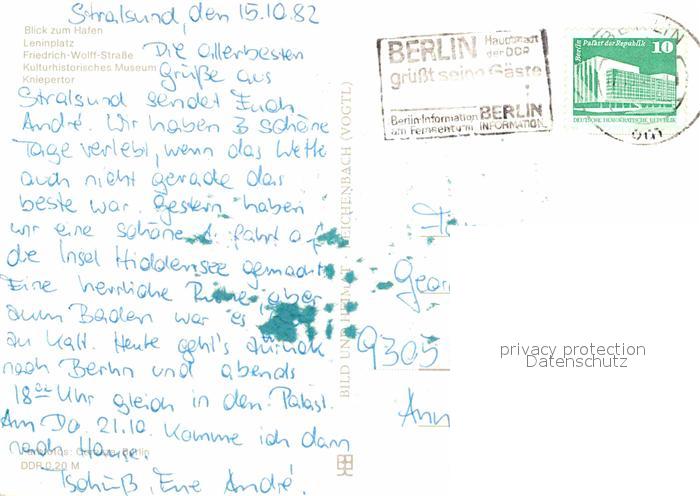 Stralsund, den 15.10.82
Blick zum Hafen
Leninplatz
Friedrich-Wolff-Straße
Kulturhistorisches Museum
Kniepertor
Die allerbesten
Grüße aus
Stralsund sendet Euch
André. Wir haben 3 schöne
Tage verlebt, wenn das Wetter
auch nicht gerade das
beste war. Gestern haben
wir eine schöne Fahrt auf
die Insel Hiddensee gemacht.
Eine herrliche aber
zum Baden war es
zu kalt. Heute geht's zurück
nach Berlin und abends
18⁰⁰ Uhr gleich in den Palast.
Am Do. 21.10. komme ich dann
nach Hause.
Berlin
DDR 0,20 M
Tschüß, Eure André.
BILD UND HEIMAT REICHENBACH (VOGTL)
BERLIN Hauptstadt
der DDR
grüßt seine Gäste
Berlin-Information BERLIN
am Fernsehturm INFORMATION
Berlin Palast der Republik 10
DEUTSCHE DEMOKRATISCHE REPUBLIK
BERLIN
9305
Ann
privacy protection
Datenschutz